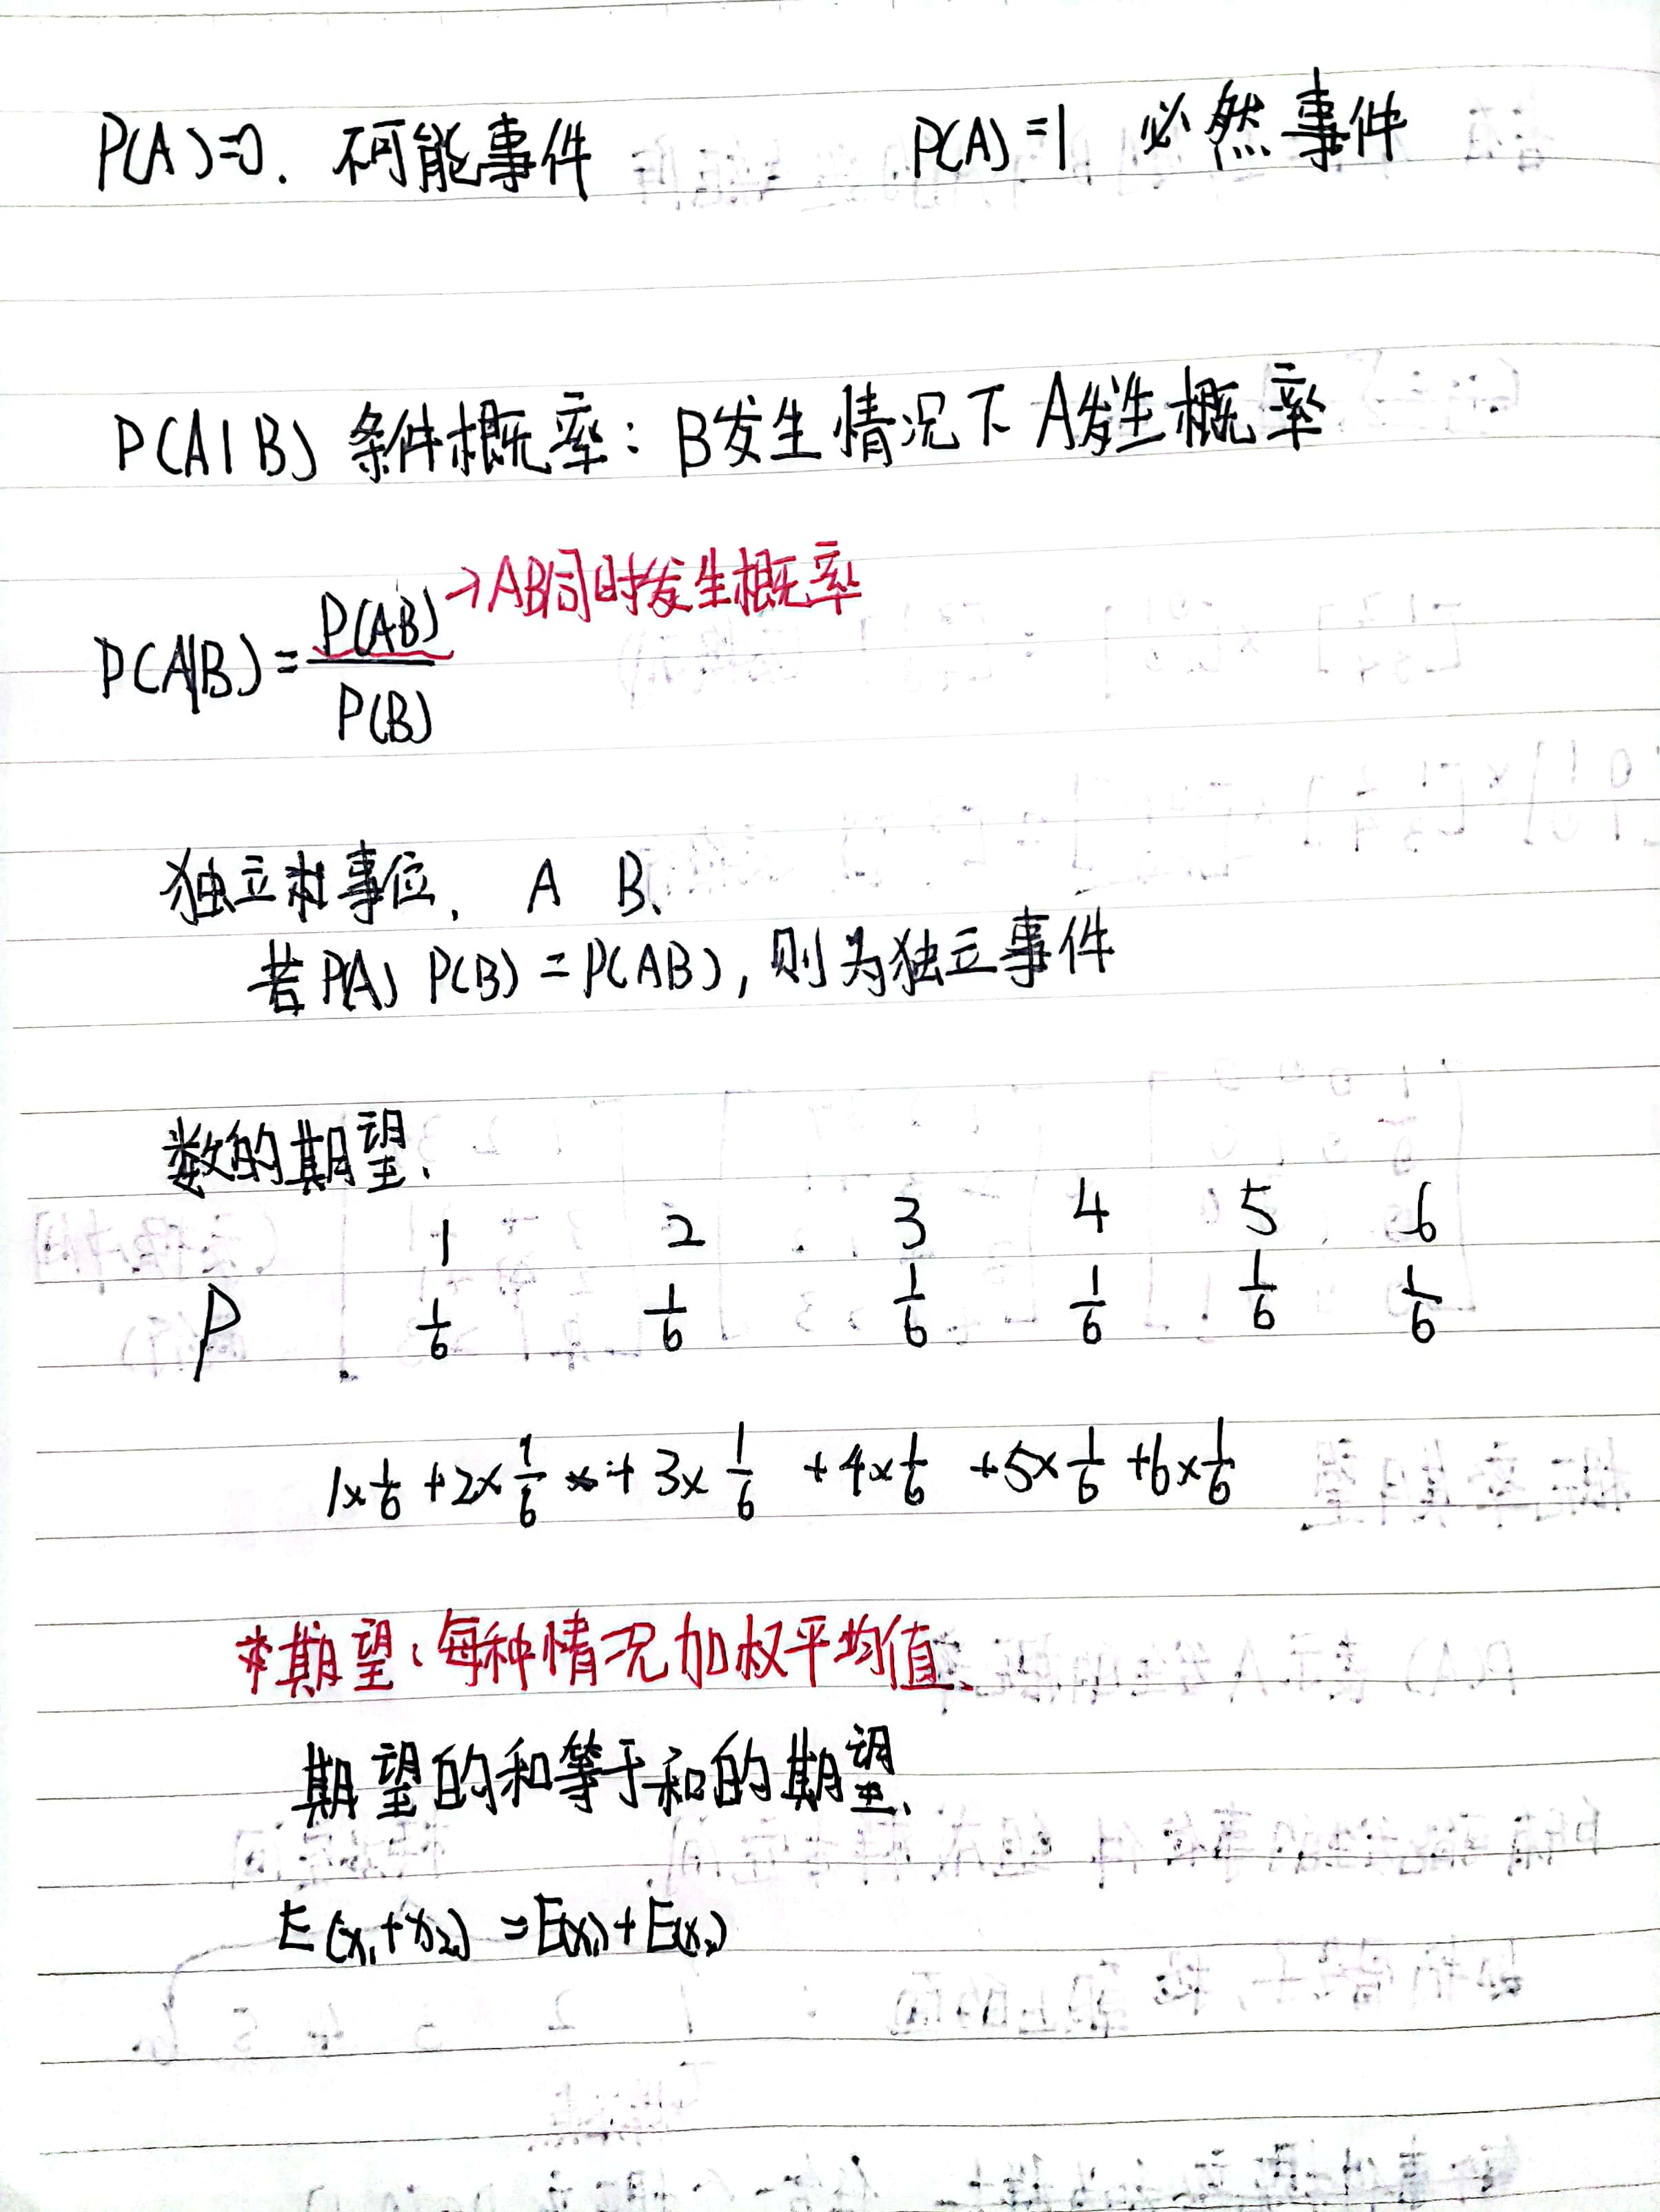 P(A)=0. 不可能事件 P(A)=1 必然事件
P(A|B) 条件概率: B发生情况下A发生概率
→AB同时发生概率
P(A|B)=P(AB)/P(B)
独立事位. A B.
若P(A) P(B)=P(AB), 则为独立事件
数的期望.
1 2 3 4 5 6
P 1/6 1/6 1/6 1/6 1/6 1/6
1×1/6+2×1/6+3×1/6+4×1/6+5×1/6+6×1/6
*期望:每种情况加权平均值.
期望的和等于和的期望.
E(x₁+x₂)=E(x₁)+E(x₂)